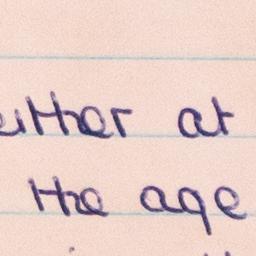 either at
the age